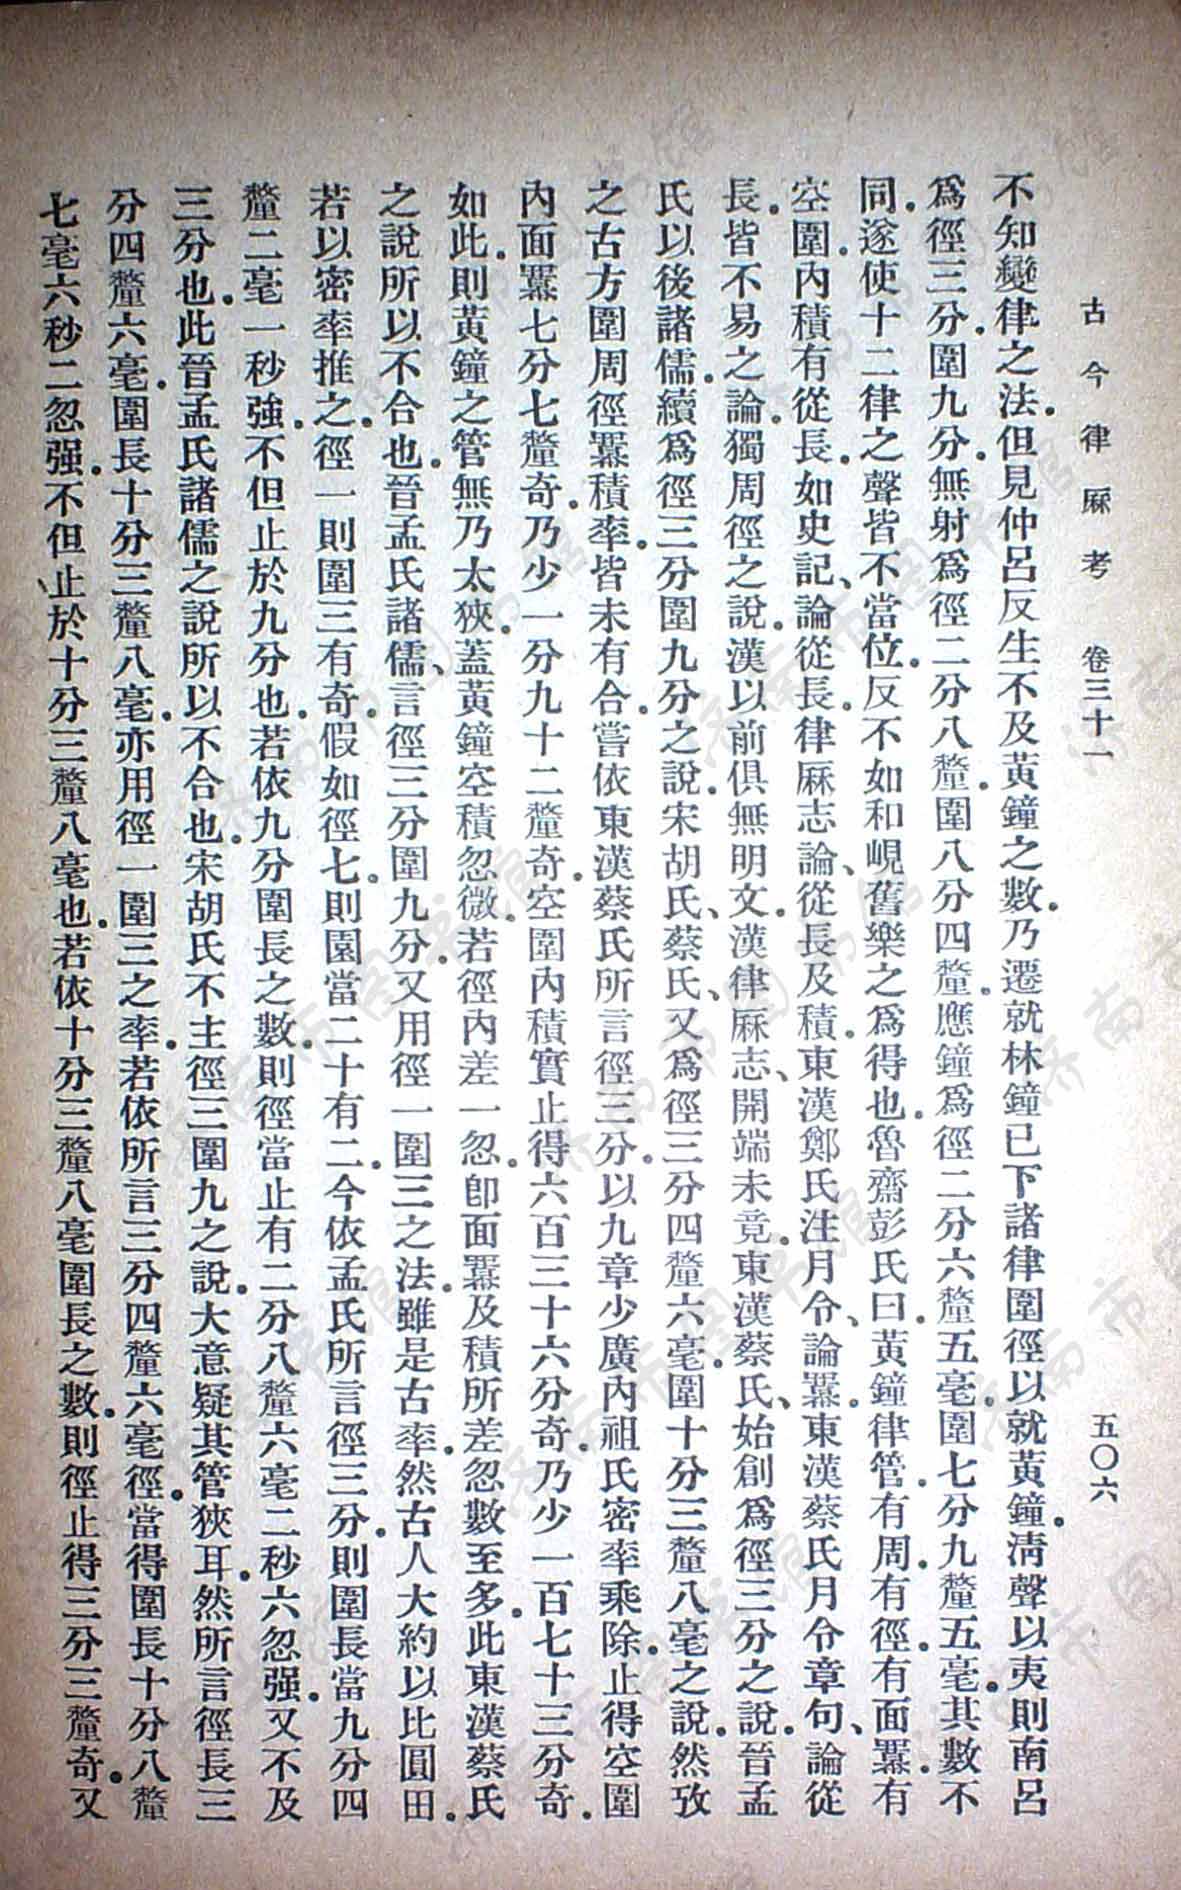 古今律厤考 卷三十一 五〇六
不知變律之法。但見仲呂反生不及黃鐘之數。乃遷就林鐘已下諸律圍徑以就黃鐘淸聲。以夷則南呂
爲徑三分。圍九分。無射爲徑二分八釐。圍八分四釐。應鐘爲徑二分六釐五毫。圍七分九釐五毫。其數不
同。遂使十二律之聲皆不當位。反不如和峴舊樂之爲得也。魯齋彭氏曰。黃鐘律管。有周。有徑。有面羃。有
空圍。內積有從長。如史記、論從長。律厤志論、從長及積。東漢鄭氏注月令、論羃。東漢蔡氏月令章句、論從
長。皆不易之論。獨周徑之說。漢以前俱無明文。漢律厤志、開端未竟。東漢蔡氏、始創爲徑三分之說。晉孟
氏以後諸儒。續爲徑三分圍九分之說。宋胡氏、蔡氏、又爲徑三分四釐六毫。圍十分三釐八毫之說。然攷
之古方圍周徑羃積率。皆未有合。嘗依東漢蔡氏所言徑三分。以九章少廣內祖氏密率乘除。止得空圍
內面羃七分七釐奇。乃少一分九十二釐奇。空圍內積實止得六百三十六分奇。乃少一百七十三分奇。
如此。則黃鐘之管無乃太狹。蓋黃鐘空積忽微。若徑內差一忽。卽面羃及積所差忽數至多。此東漢蔡氏
之說所以不合也。晉孟氏諸儒、言徑三分圍九分。又用徑一圍三之法。雖是古率。然古人大約以比圓田。
若以密率推之。徑一則圍三有奇。假如徑七。則園當二十有二。今依孟氏所言徑三分。則圍長當九分四
釐二毫一秒強。不但止於九分也。若依九分圍長之數。則徑當止有二分八釐六毫二秒六忽强。又不及
三分也。此晉孟氏諸儒之說所以不合也。宋胡氏不主徑三圍九之說。大意疑其管狹耳。然所言徑長三
分四釐六毫。圍長十分三釐八毫。亦用徑一圍三之率。若依所言三分四釐六毫徑。當得圍長十分八釐
七毫六秒二忽强。不但止於十分三釐八毫也。若依十分三釐八毫圍長之數。則徑止得三分三釐奇。又